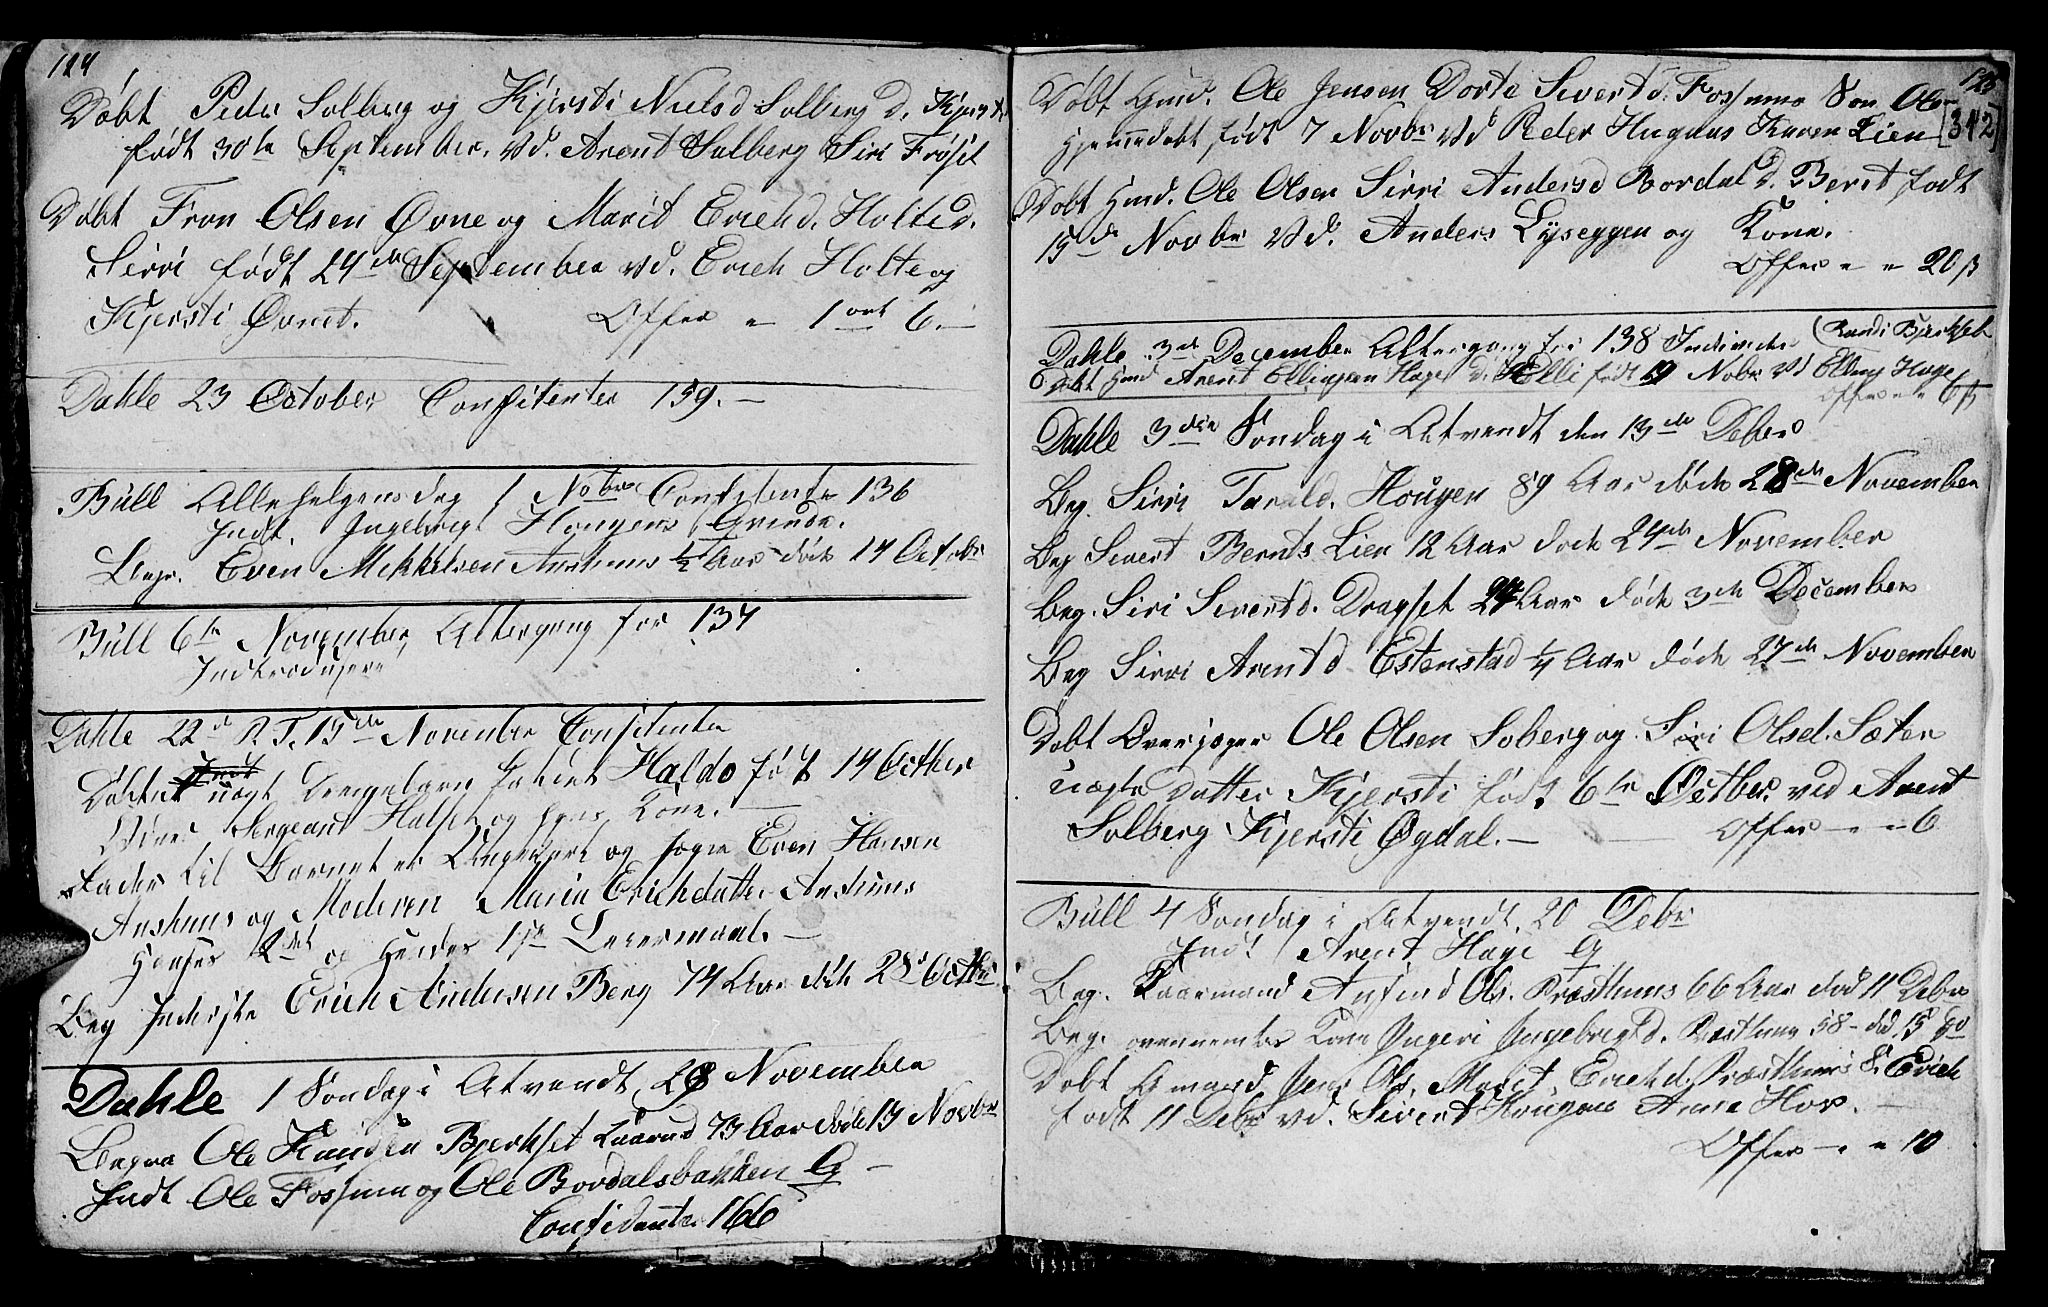 124
Døbt Peder Solberg og Kjersti Nielsd Solberg D. Kjersti
født 30te September. Vd. Arent Solberg Siri Frøset
Døbt Fron Olsen Øvne og Marit Erichd. Holte D.
Sirri født 24de September vd. Erich Holte og
Kjersti Øvnet. Offer = 1 ort 6.—
Dahle 23 October Confitenter 159.—
Büll Allehelgensdag 1 Nobr Confitenter 136
Indt. Ingebrigt Hougens Qvinde.
Begr. Even Mikkelsen Aushuus ½ Aar døde 14 Octobr
Büll 6te November, Altergang for 134
Introdujere
Dahle 22de P. T. 15de November Confitenter
Døbt et uægt Drengebarn kaldet Haldo født 14 Octber
Sergeant Halset og hans Kone.
Fader til Barnet er Ungekarl og Jæger Even Hansen
Aushuus og Moderen Marin Erichdatter Aushuus
Hanses 2det og hendes 1ste Leiermaal.—
Beg Inderste Erich Andersen Berg 74 Aar døde 28de Octbr
Dahle 1 Søndag i Atvendt 29 November
Begra Ole Knudsen Bjerkset Kaarmd 73 Aar døde 13 Novbr
Indt Ole Fossum og Ole Bordalsbakken Q—
Confidenter 166
125
Døbt Gmd. Ole Jensen Dorte Sivertd. Fossum Søn Ole
[342]
Hjemmedøbt født 7 Novbr Vd Peder Hugaas Karen Lien
Døbt Hmd. Ole Olsen Sirri Andersd Bordal D. Berit født
15de Novbr Vd. Anders Lyseggen og Kone.
Offer = = 20 β
Dahle 3de December Altergang for 138 Individer (Randi Bjerkset
Døbt Hmd Arent Ellingsen Hage D. Elli født 19 Nobr Vd Elling Hage
Offer = = 6 β
Dahle 3die Søndag i Atvendt den 13de Debr
Beg. Sirri Tarald. Hougen 89 Aar døde 28de November
Beg Sivert Bernts. Lien 12 Aar døde 24de November
Beg. Siri Sivertd. Dragset 24 Aar døde 3de December
Beg Sirri Arentd Estenstad ¼ Aar døde 27de November
Døbt Overjæger Ole Olsen Soberg og Siri Olsd. Sæter
uægte Datter Kjersti født 6te Octber. ved Arent
Solberg Kjersti Øgdal.— Offer — = 6
Büll 4 Søndag i Atvendt 20 Debr
Indt Arent Hage Q
Beg. Kaarmand Anfind Ols. Præsthuus 66 Aar død 11 Debr
Beg. ovennemte Kone Ingeri Ingebrigtd. Præsthuus 58 — død 15 do
Døbt Gmand Jens Ols. Marit Erichd. Præsthuus S. Erich
født 11 Debr vd. Sivert Hougen Anne Hov.—
Offer — = 10